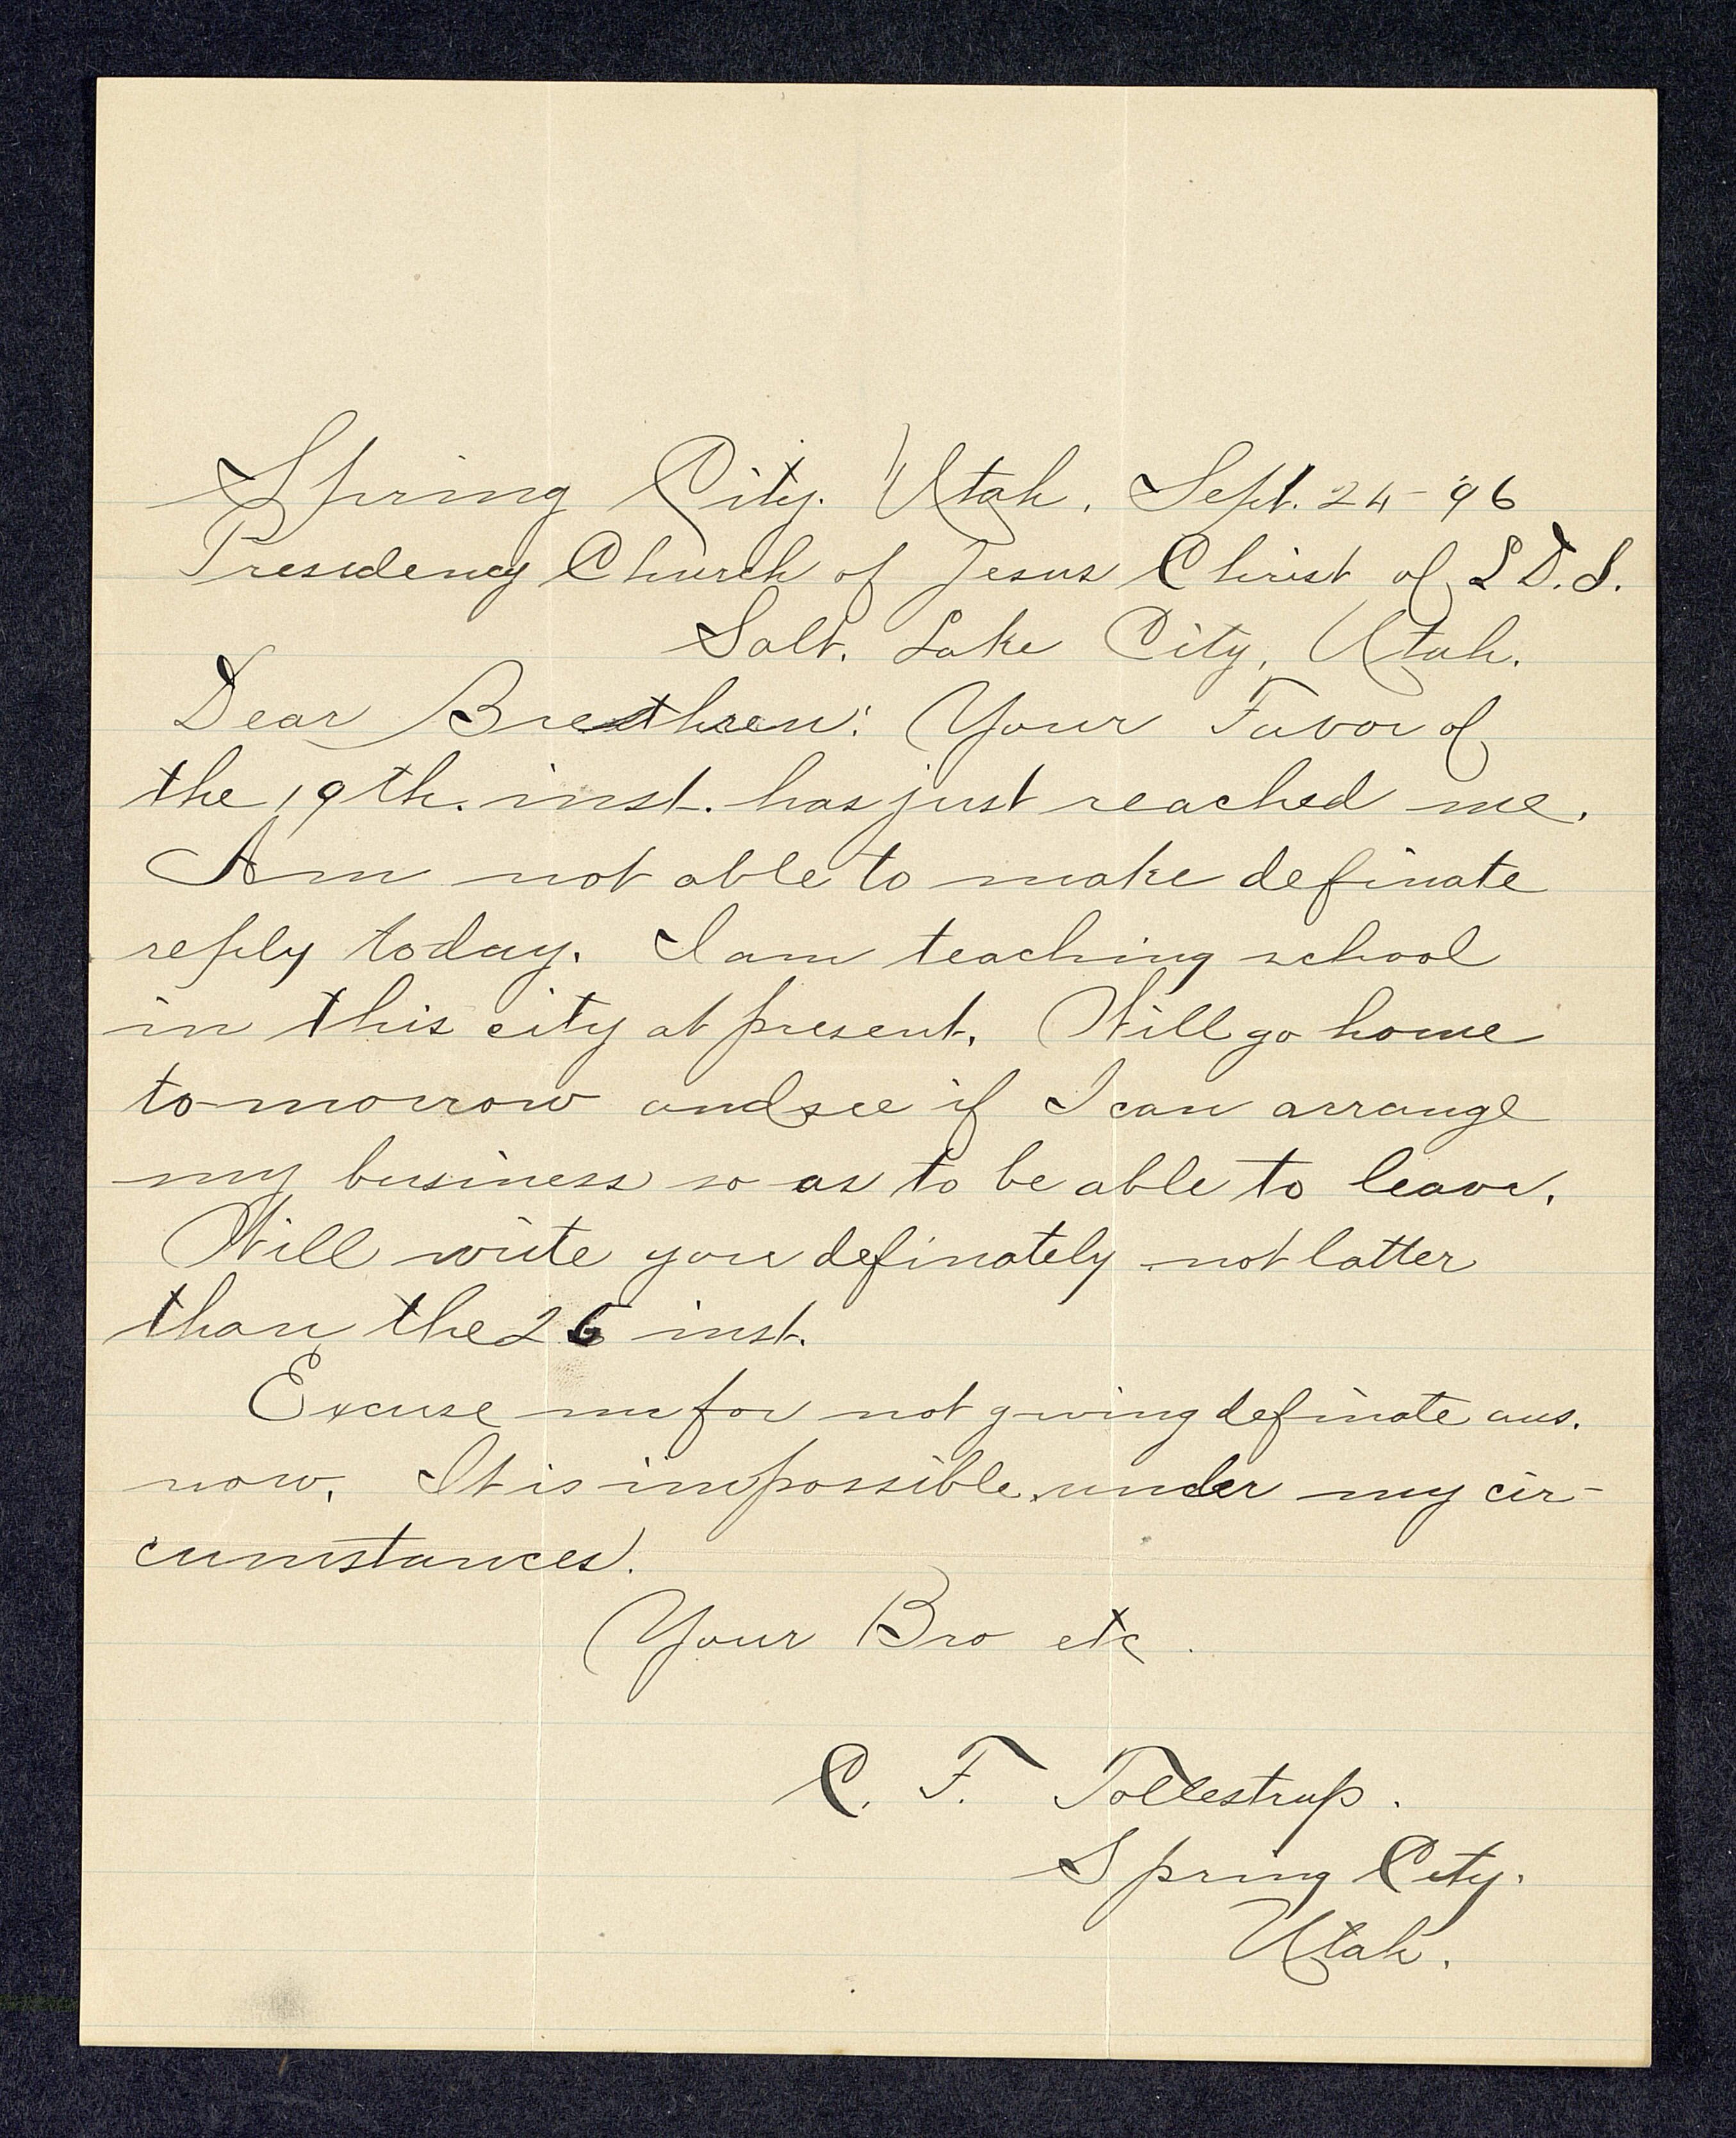 Spring City. Utah, Sept. 24 - 96
Presidency Church of Jesus Christ of L D. S.
Salt. Lake City, Utah.
Dear Brethren: Your Favor of
the 19th. inst. has just reached me.
Am not able to make definate
reply today. I am teaching school
in this city at present. Will go home
to-morrow and see if I can arrange
my business so as to be able to leave.
Will write you definately not latter
than the 26 inst.
Excuse me for not giving definate ans.
now. It is impossible under my cir-
cumstances.
Your Bro etc.
C. F. Tollestrup.
Spring City.
Utah.